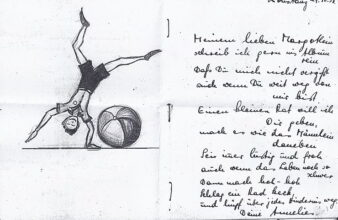 Meinem lieben Margotlein
schreib ich gern ins Album
rein
Daß Du mich nicht vergißt
auch wenn Du weit weg von
mir bist.
Einen kleinen Rat will ich
Dir geben,
mach es wie das Männlein
daneben
Sei immer lustig und froh
auch wenn das Leben noch so
schwer
Dann mach hok-hok
schlag ein Rad keck,
und hüpf über jedes Hindernis weg.
Deine Annelies